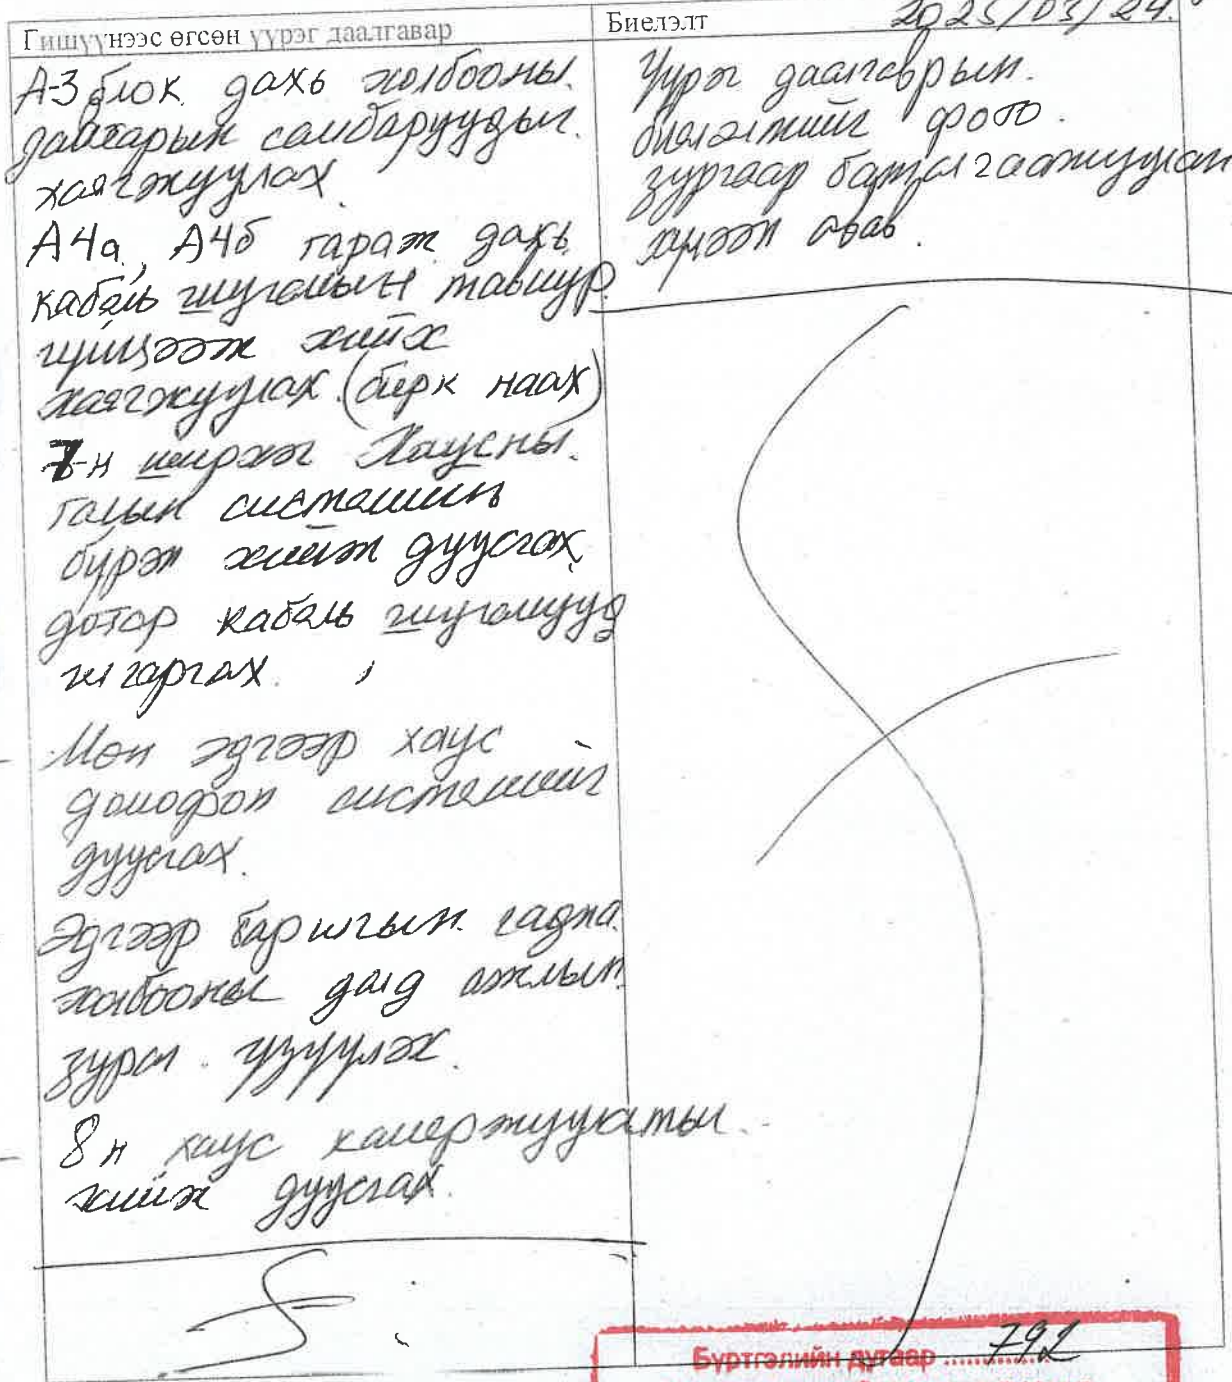 Гишүүнээс өгсөн үүрэг даалгавар
Биелэлт
2025/03/24.
А-3 блок дахь холбооны
давхарын самбаруудыг
хаягжуулах
А4а, А4б гараж дахь
кабель шугамын тавиур
гүйцээж хийх
хаягжуулах (бирк наах)
7-н ширхэг Хаусны
галын системийн
бүрэн хийж дуусгах,
дотор кабель шугамууд
ил гаргах.
Мөн эдгээр хаус
домофон системийг
дуусгах.
Эдгээр барилгын гадна
холбооны далд ажлын
зураг үзүүлэх.
8н хаус камержуулалтыг
хийж дуусгах.
Үүрэг даалгаврын
биелэлтийг фото
зургаар баталгаажуулан
хүлээн авав.
Бүртгэлийн дугаар ............ 792